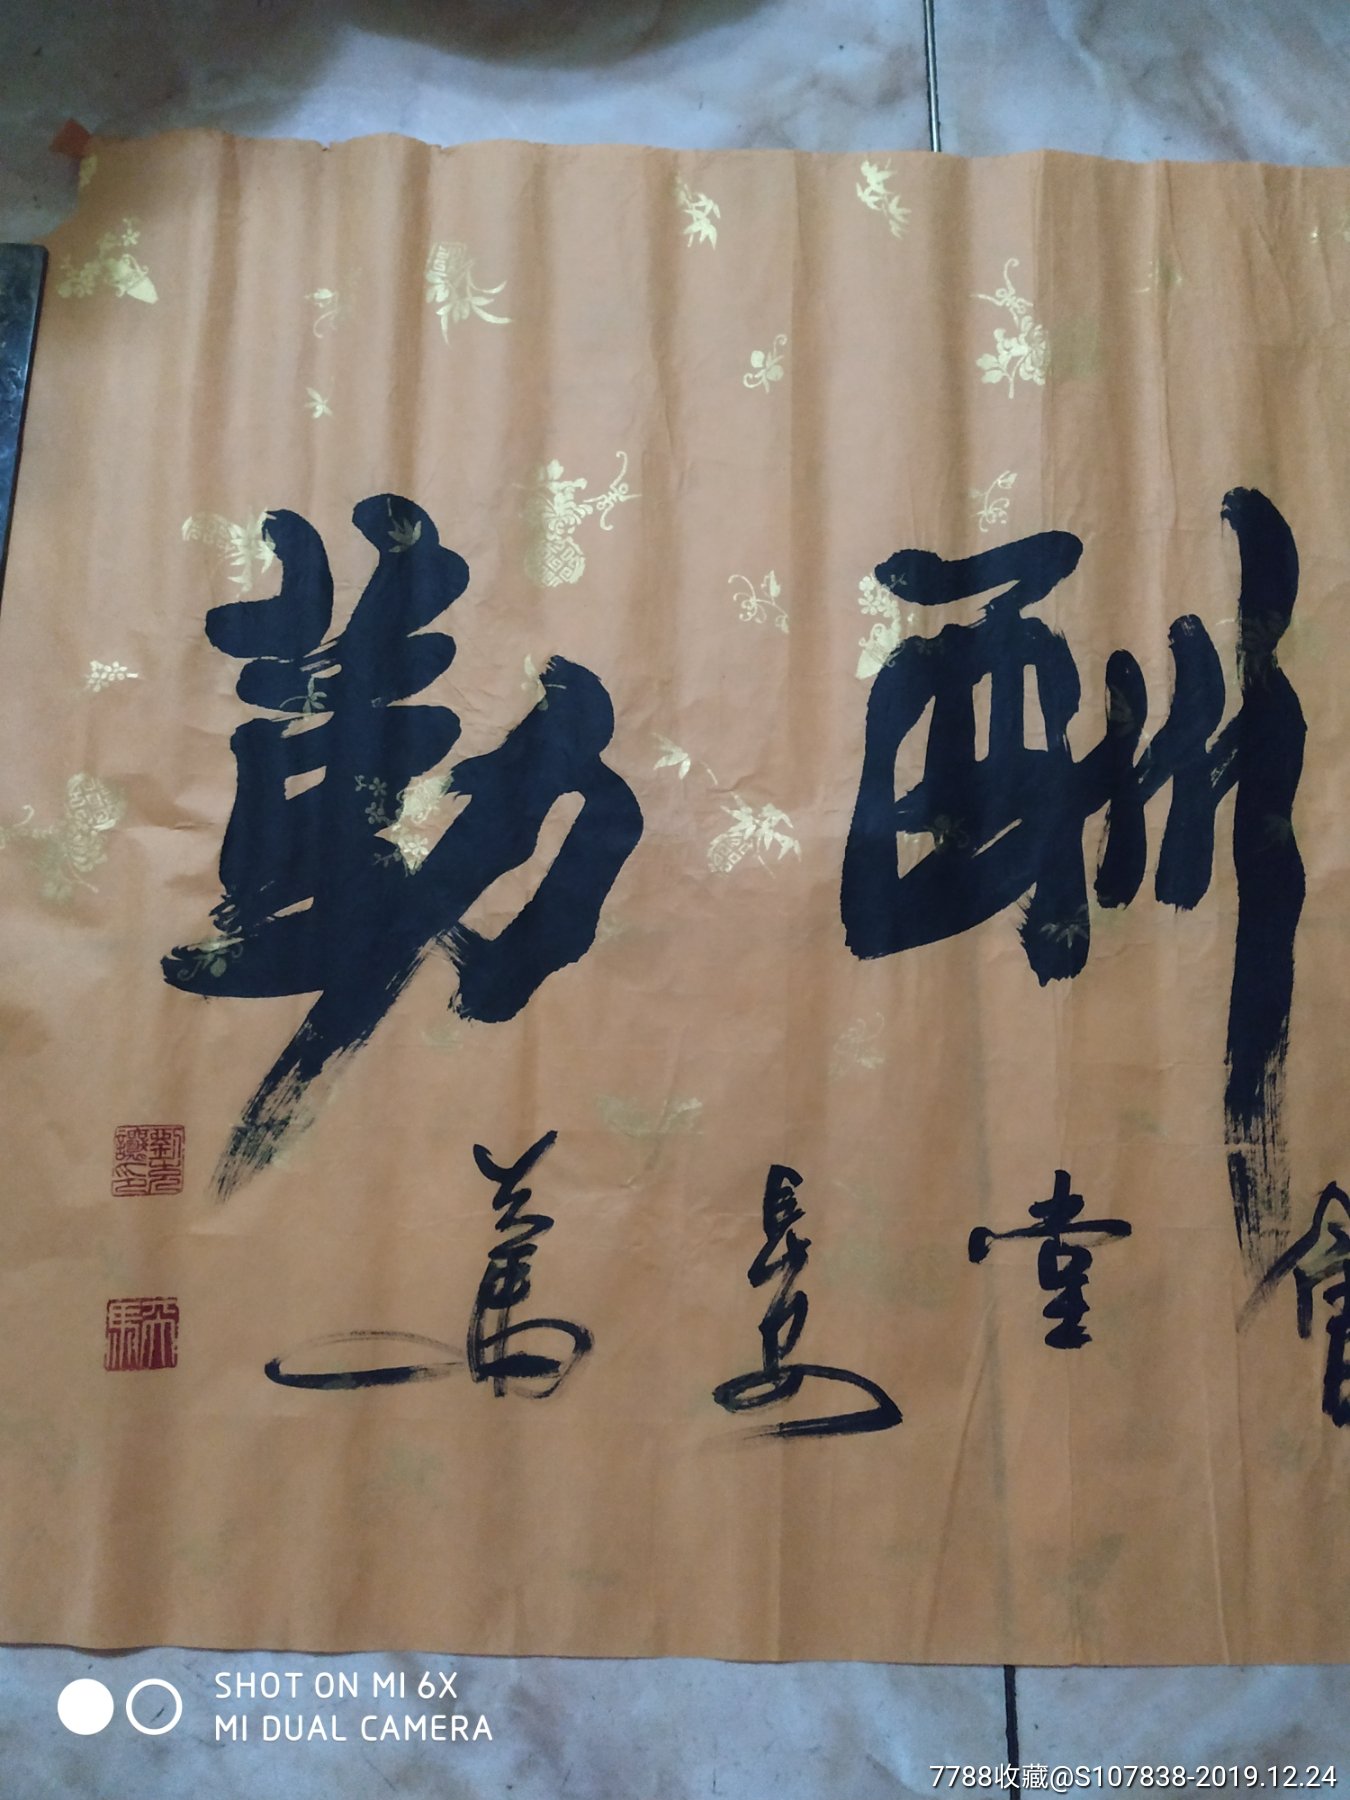 酬勤
堂
長安
SHOT ON MI 6X
MI DUAL CAMERA
7788收藏@S107838-2019.12.24